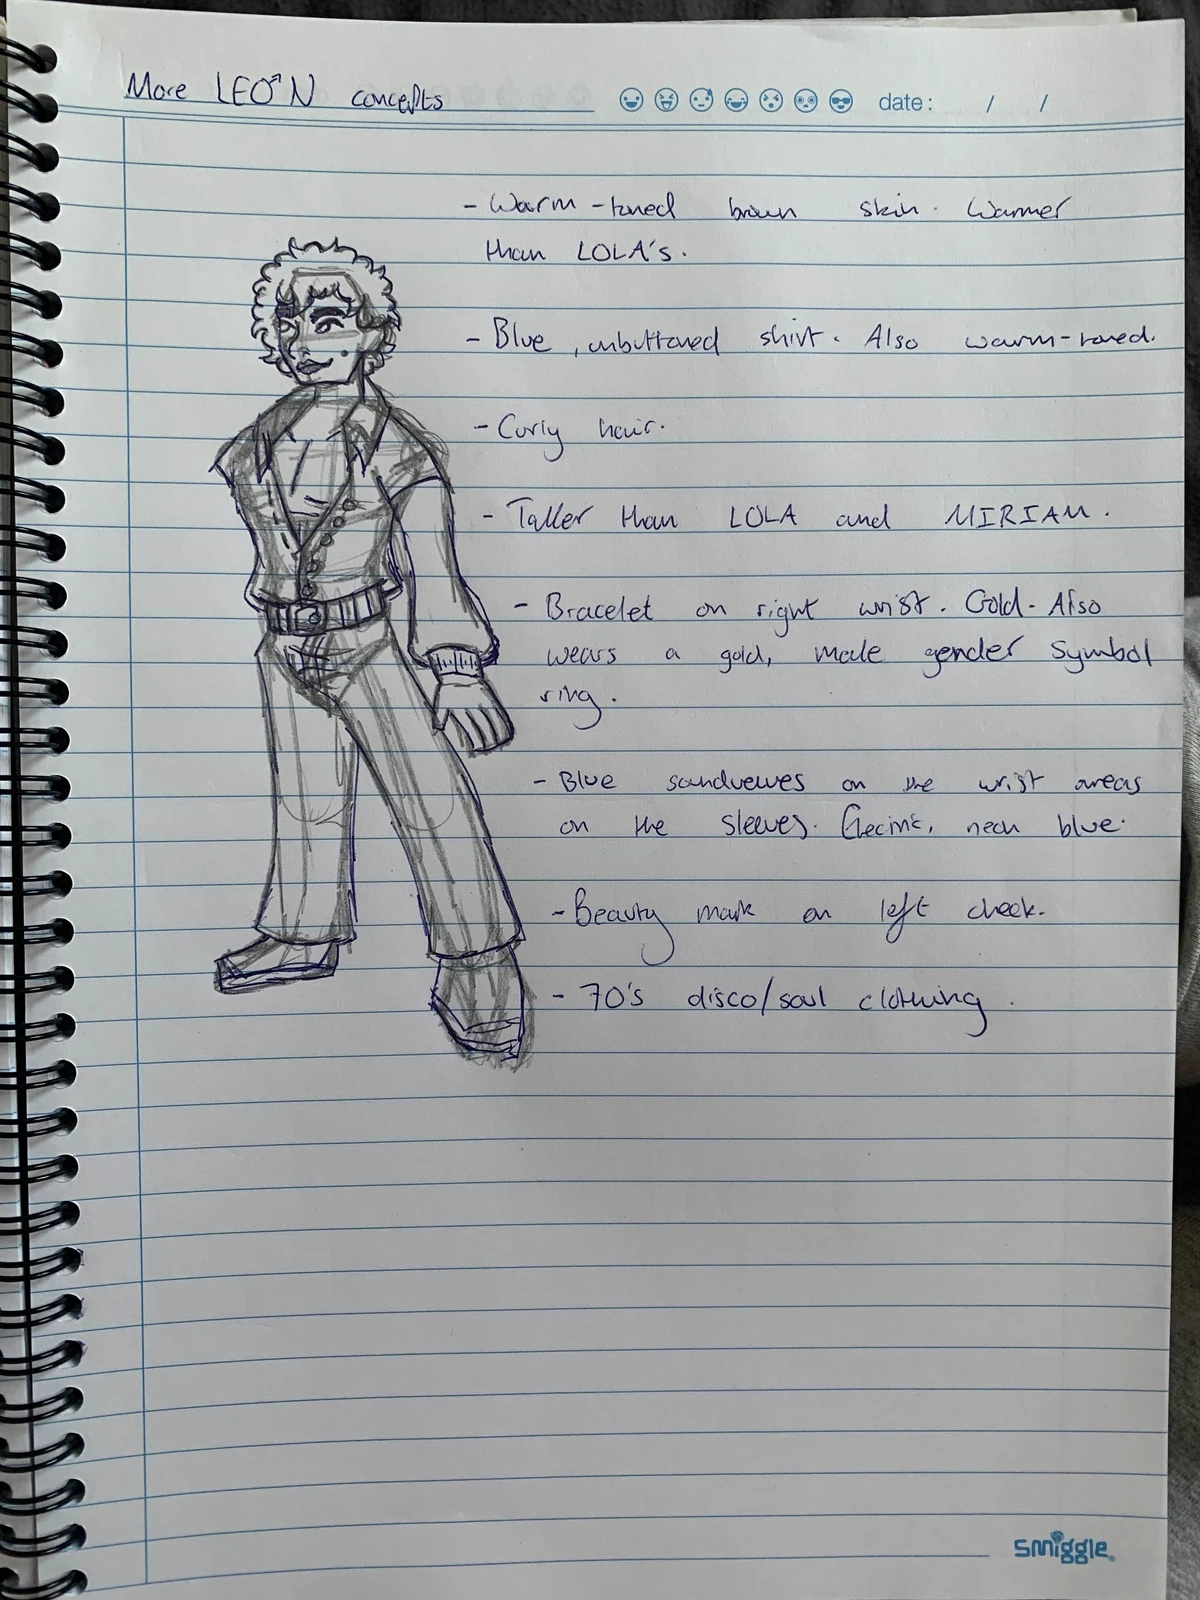 More LEO♂N concepts
date: / /
- Warm-toned brown skin. Warmer
than LOLA's.
- Blue, unbuttoned shirt. Also warm-toned.
- Curly hair.
- Taller than LOLA and MIRIAM.
- Bracelet on right wrist. Gold. Also
wears a gold, male gender symbol
ring.
- Blue soundwaves on the wrist areas
on the sleeves. Electric, neon blue.
- Beauty mark on left cheek.
- 70's disco/soul clothing.
smiggle